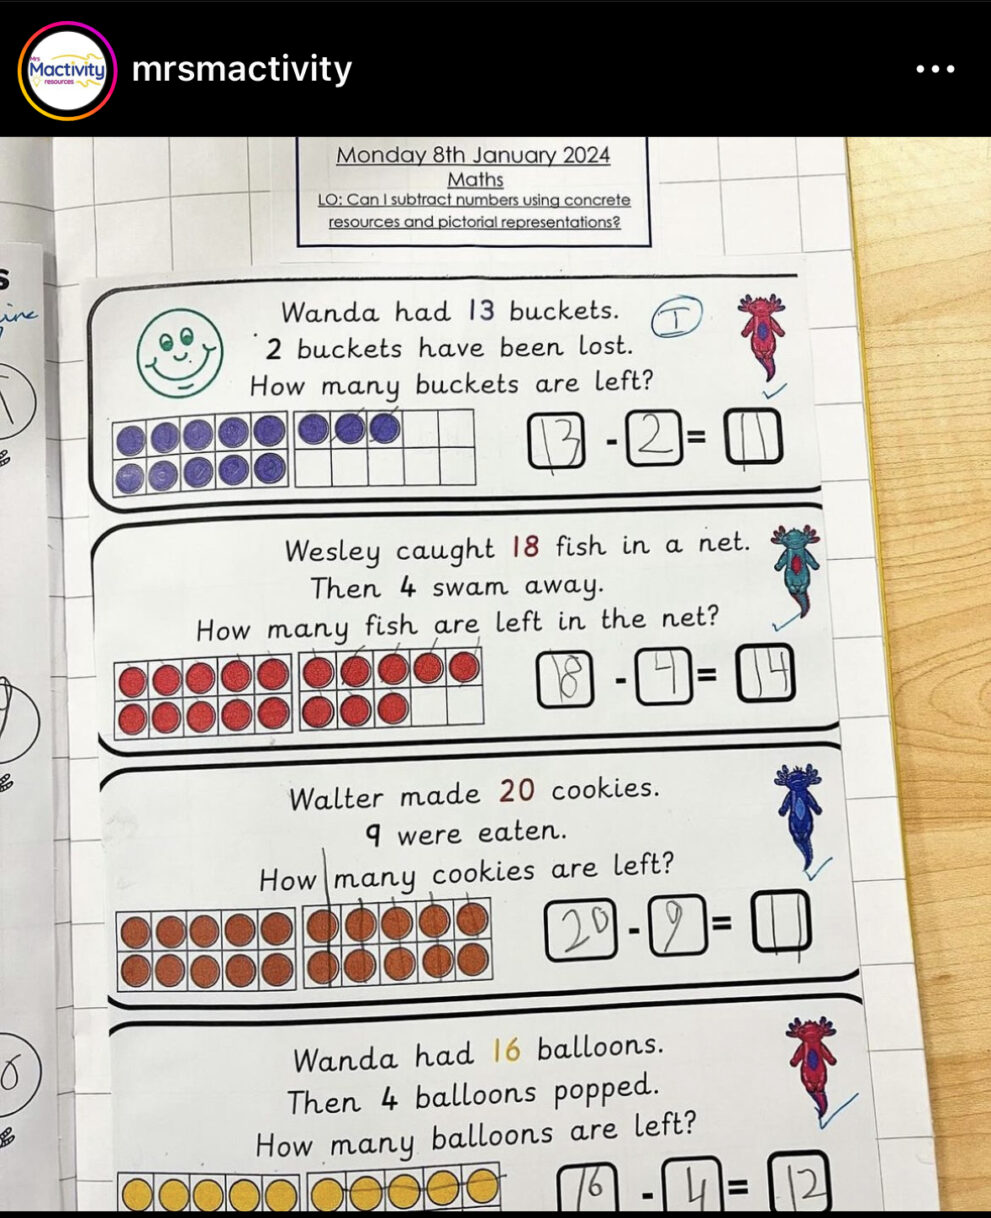 Mrs
Mactivity
resources
mrsmactivity
Monday 8th January 2024
Maths
LO: Can I subtract numbers using concrete
resources and pictorial representations?
Wanda had 13 buckets.
I
2 buckets have been lost.
How many buckets are left?
13 - 2 = 11
Wesley caught 18 fish in a net.
Then 4 swam away.
How many fish are left in the net?
18 - 4 = 14
Walter made 20 cookies.
9 were eaten.
How many cookies are left?
20 - 9 = 11
Wanda had 16 balloons.
Then 4 balloons popped.
How many balloons are left?
16 - 4 = 12